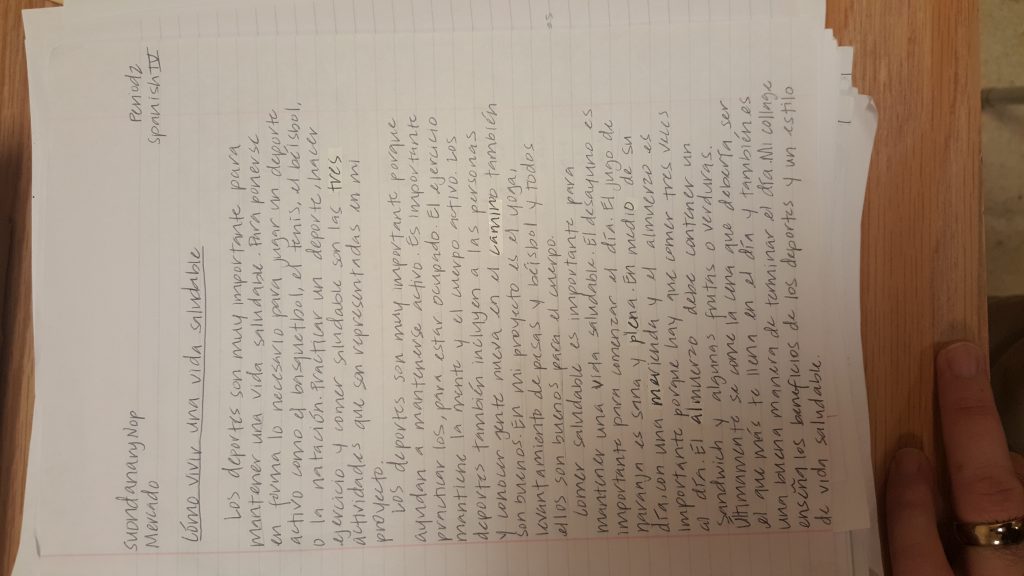 Suondanany Nop
Period 2
Mercado
Spanish IV
Cómo vivir una vida saludable
Los deportes son muy importante para
mantener una vida saludable. Para ponerse
en forma lo necesario para jugar un deporte
activo como el basquetbol, el tenis, el beísbol,
o la natación. Practicar un deporte, hacer
ejercicio y comer saludable son las tres
actividades que son representadas en mi
proyecto.
Los deportes son muy importante porque
ayudan a mantenerse activo. Es importante
practicar los, para estar ocupado. El ejercicio
mantiene la mente y el cuerpo activo. Los
deportes también incluyen a las personas
y conocer gente nueva en el camino también
son buenos. En mi proyecto es el yoga,
levantamiento de pesas y beísbol y todos
ellos son bueno para el cuerpo.
Comer saludable es importante para
mantener una vida saludable. El desayuno es
importante para comenzar el día. El jugo de
naranja es sana y plena. En medio de su
día, con una merienda y el almuerzo es
importante porque hay que comer tres veces
al día. El almuerzo debe contener un
sandwich y algunas frutas o verduras.
Ultimamente se come la cena que debería ser
el que más te llena en el día y también es
una buena manera de terminar el día. Mi collage
enseña los beneficios de los deportes y un estilo
de vida saludable.